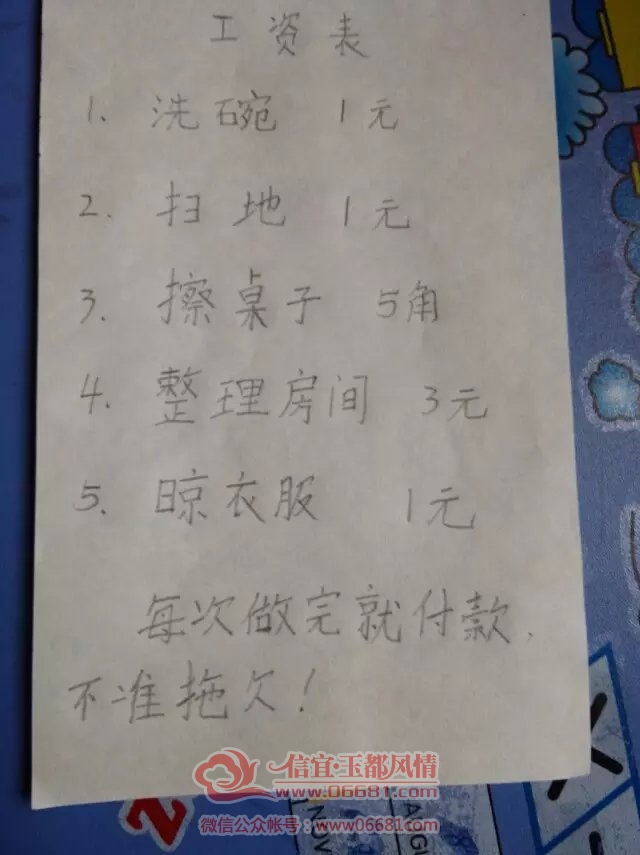 工资表
1. 洗碗 1元
2. 扫地 1元
3. 擦桌子 5角
4. 整理房间 3元
5. 晾衣服 1元
每次做完就付款,
不准拖欠!
信宜·玉都风情
www.06681.com
微信公众帐号:www06681com
2
NOV